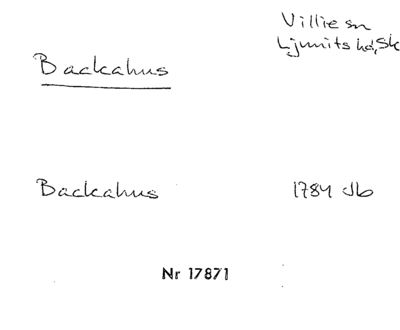 Villie sn
Ljunits hd, Sk
Backahus
Backahus 1784 Jb
Nr 17871